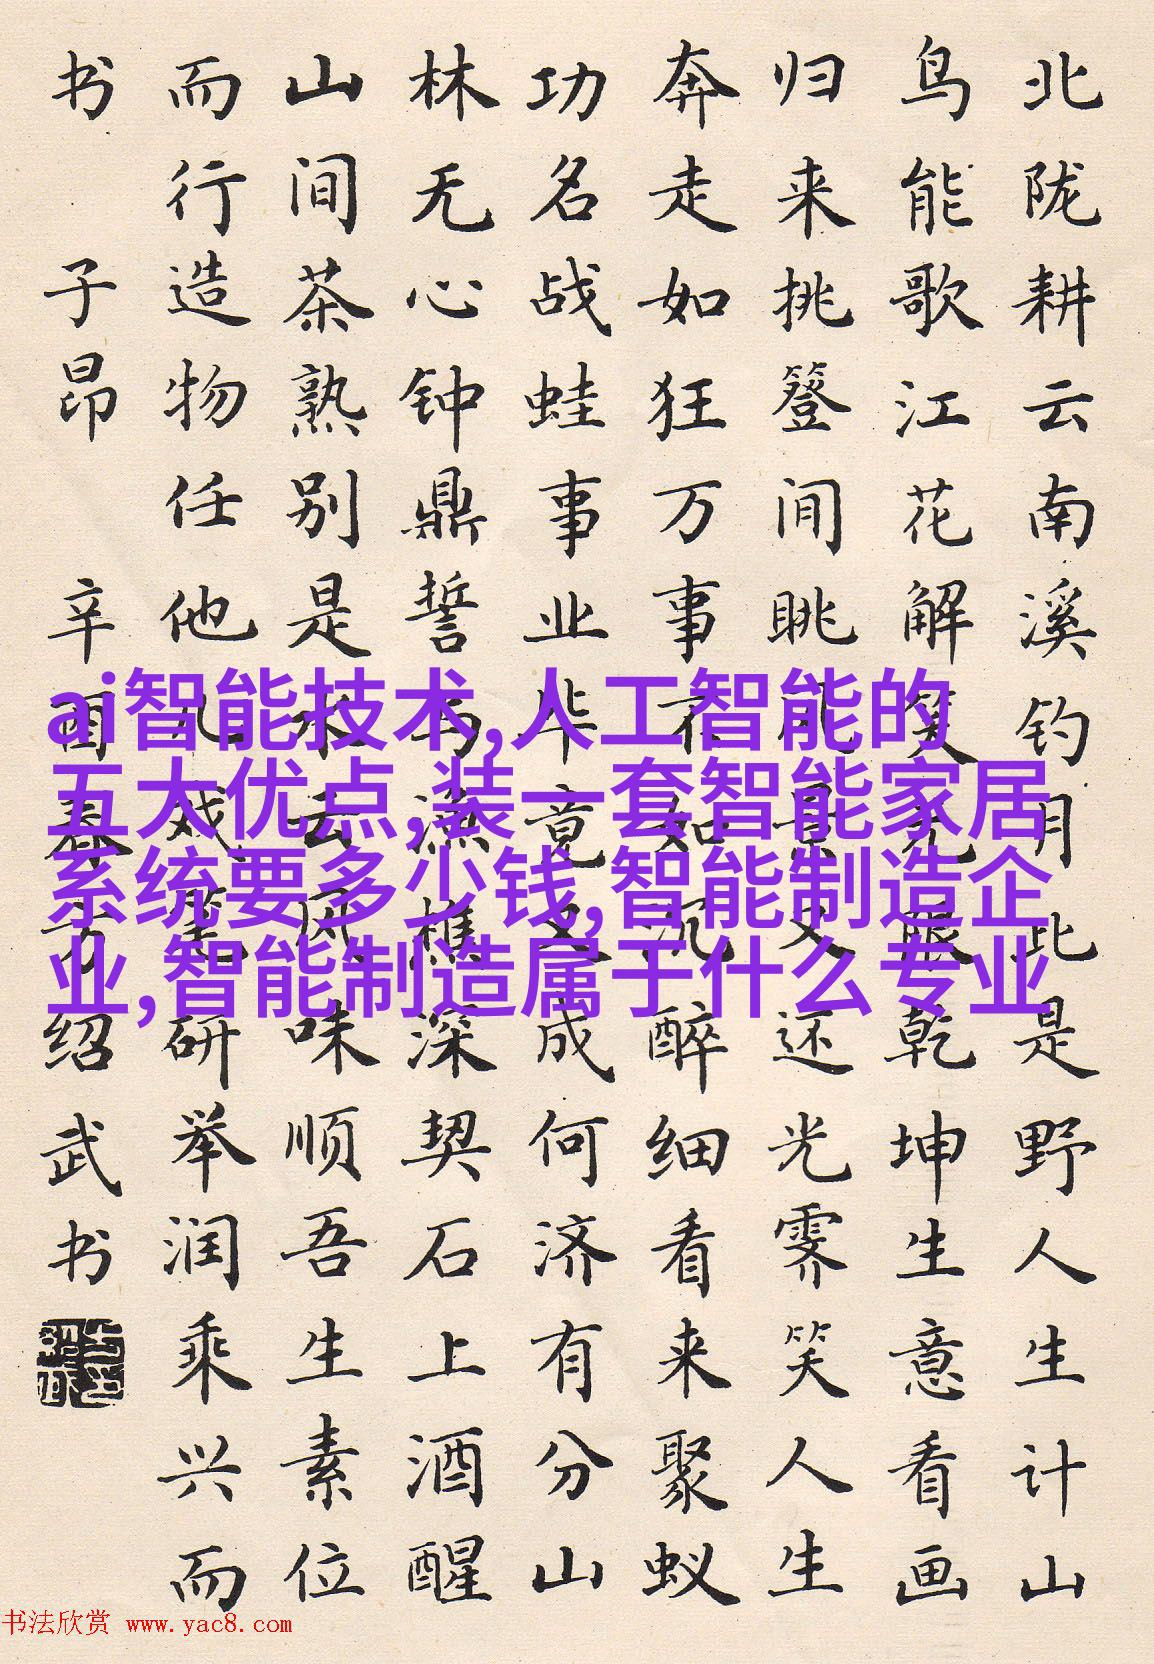 北陇耕云南溪钓月此是野人生计山
鸟能歌江花解笑无限乾坤生意看画
归来挑簦间眺风景又还光霁笑人生
奔走如狂万事如沉醉细看来聚蚁
功名战蛙事业毕竟又成何济有分山
林无心钟鼎誓与渔樵深契石上酒醒
山间茶熟别是水云风味顺吾生素位
而行造物任他儿戏笔研举润乘兴而
书 子昂 辛酉春方绍武书
ai智能技术,人工智能的
五大优点,装一套智能家居
系统要多少钱,智能制造企
业,智能制造属于什么专业
书法欣赏 www.yac8.com